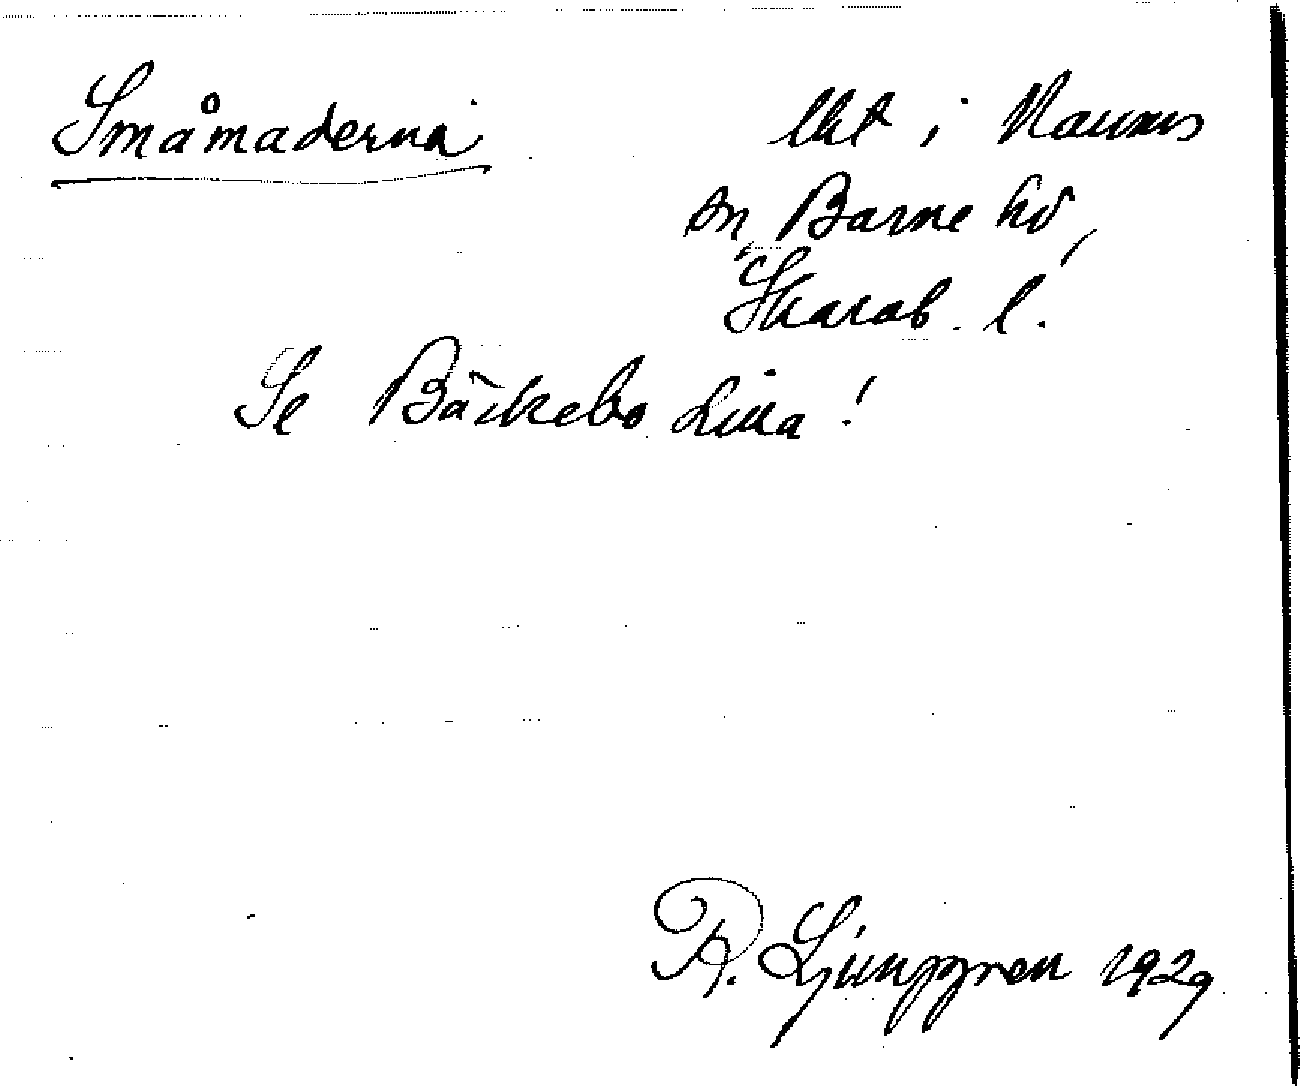 Småmaderna
Ukt i Naums
sn, Barne hd,
Skarab. l.
Se Bäckebo Lilla!
R. Ljunggren 1929